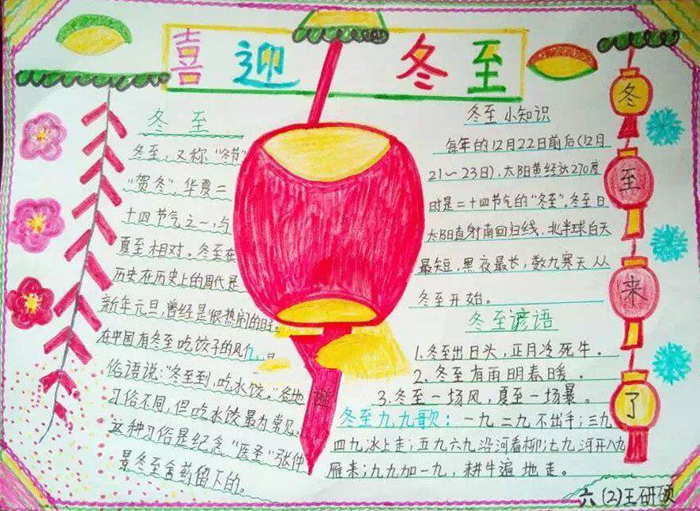 喜迎冬至
冬至
冬至,又称“冬节”
“贺冬”,华夏二
十四节气之一,与
夏至相对。冬至在
历史在历史上的周代是
新年元旦,曾经是很热闹的日
在中国有冬至吃饺子的风
俗语说:“冬至到,吃水饺。各地
习俗不同,但吃水饺最为常见。
这种习俗是纪念“医圣”张仲
景冬至舍药留下的。
冬至小知识
每年的12月22日前后(12月
21~23日),太阳黄经达270度
时是二十四节气的“冬至”。冬至日
太阳直射南回归线,北半球白天
最短,黑夜最长,数九寒天从
冬至开始。
冬至谚语
1.冬至出日头,正月冷死牛。
2.冬至有雨明春暖。
3.冬至一场风,夏至一场暴。
冬至九九歌:一九二九不出手;三九
四九冰上走;五九六九沿河看柳;七九河开八九
雁来;九九加一九,耕牛遍地走。
冬至来了
六(2)王研硕